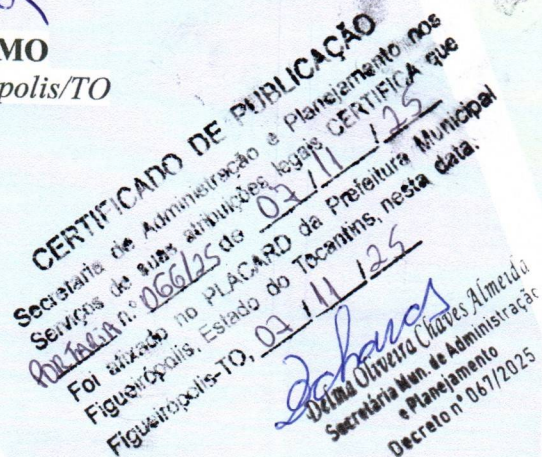 MO
polis/TO
CERTIFICADO DE PUBLICAÇÃO
Secretaria de Administração e Planejamento nos
Serviços de suas atribuições legais CERTIFICA que
PORTARIA n.º 066/25 de 07/11/25
Foi afixado no PLACARD da Prefeitura Municipal
Figueirópolis, Estado do Tocantins, nesta data.
Figueirópolis-TO, 07/11/25
Delma Oliveira Chaves Almeida
Secretária Mun. de Administração
e Planejamento
Decreto nº 067/2025